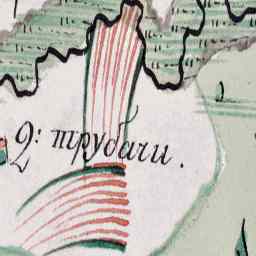 2: трубачи.